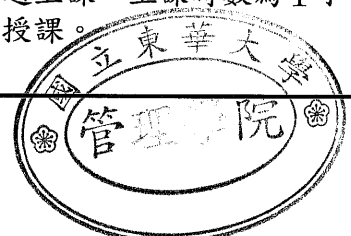 授課。
國立東華大學
管理學院